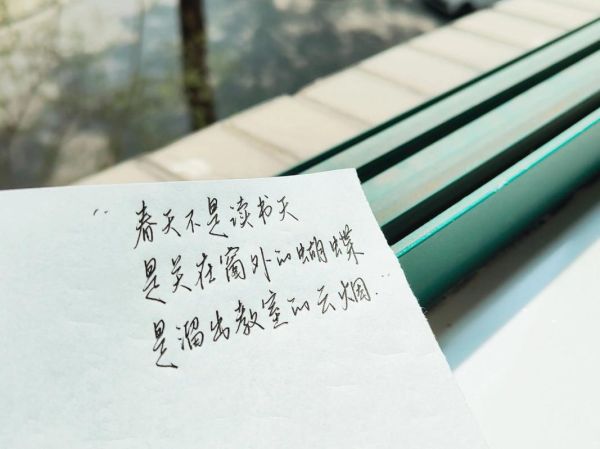 “春天不是读书天
是关在窗外的蝴蝶
是溜出教室的云烟.”